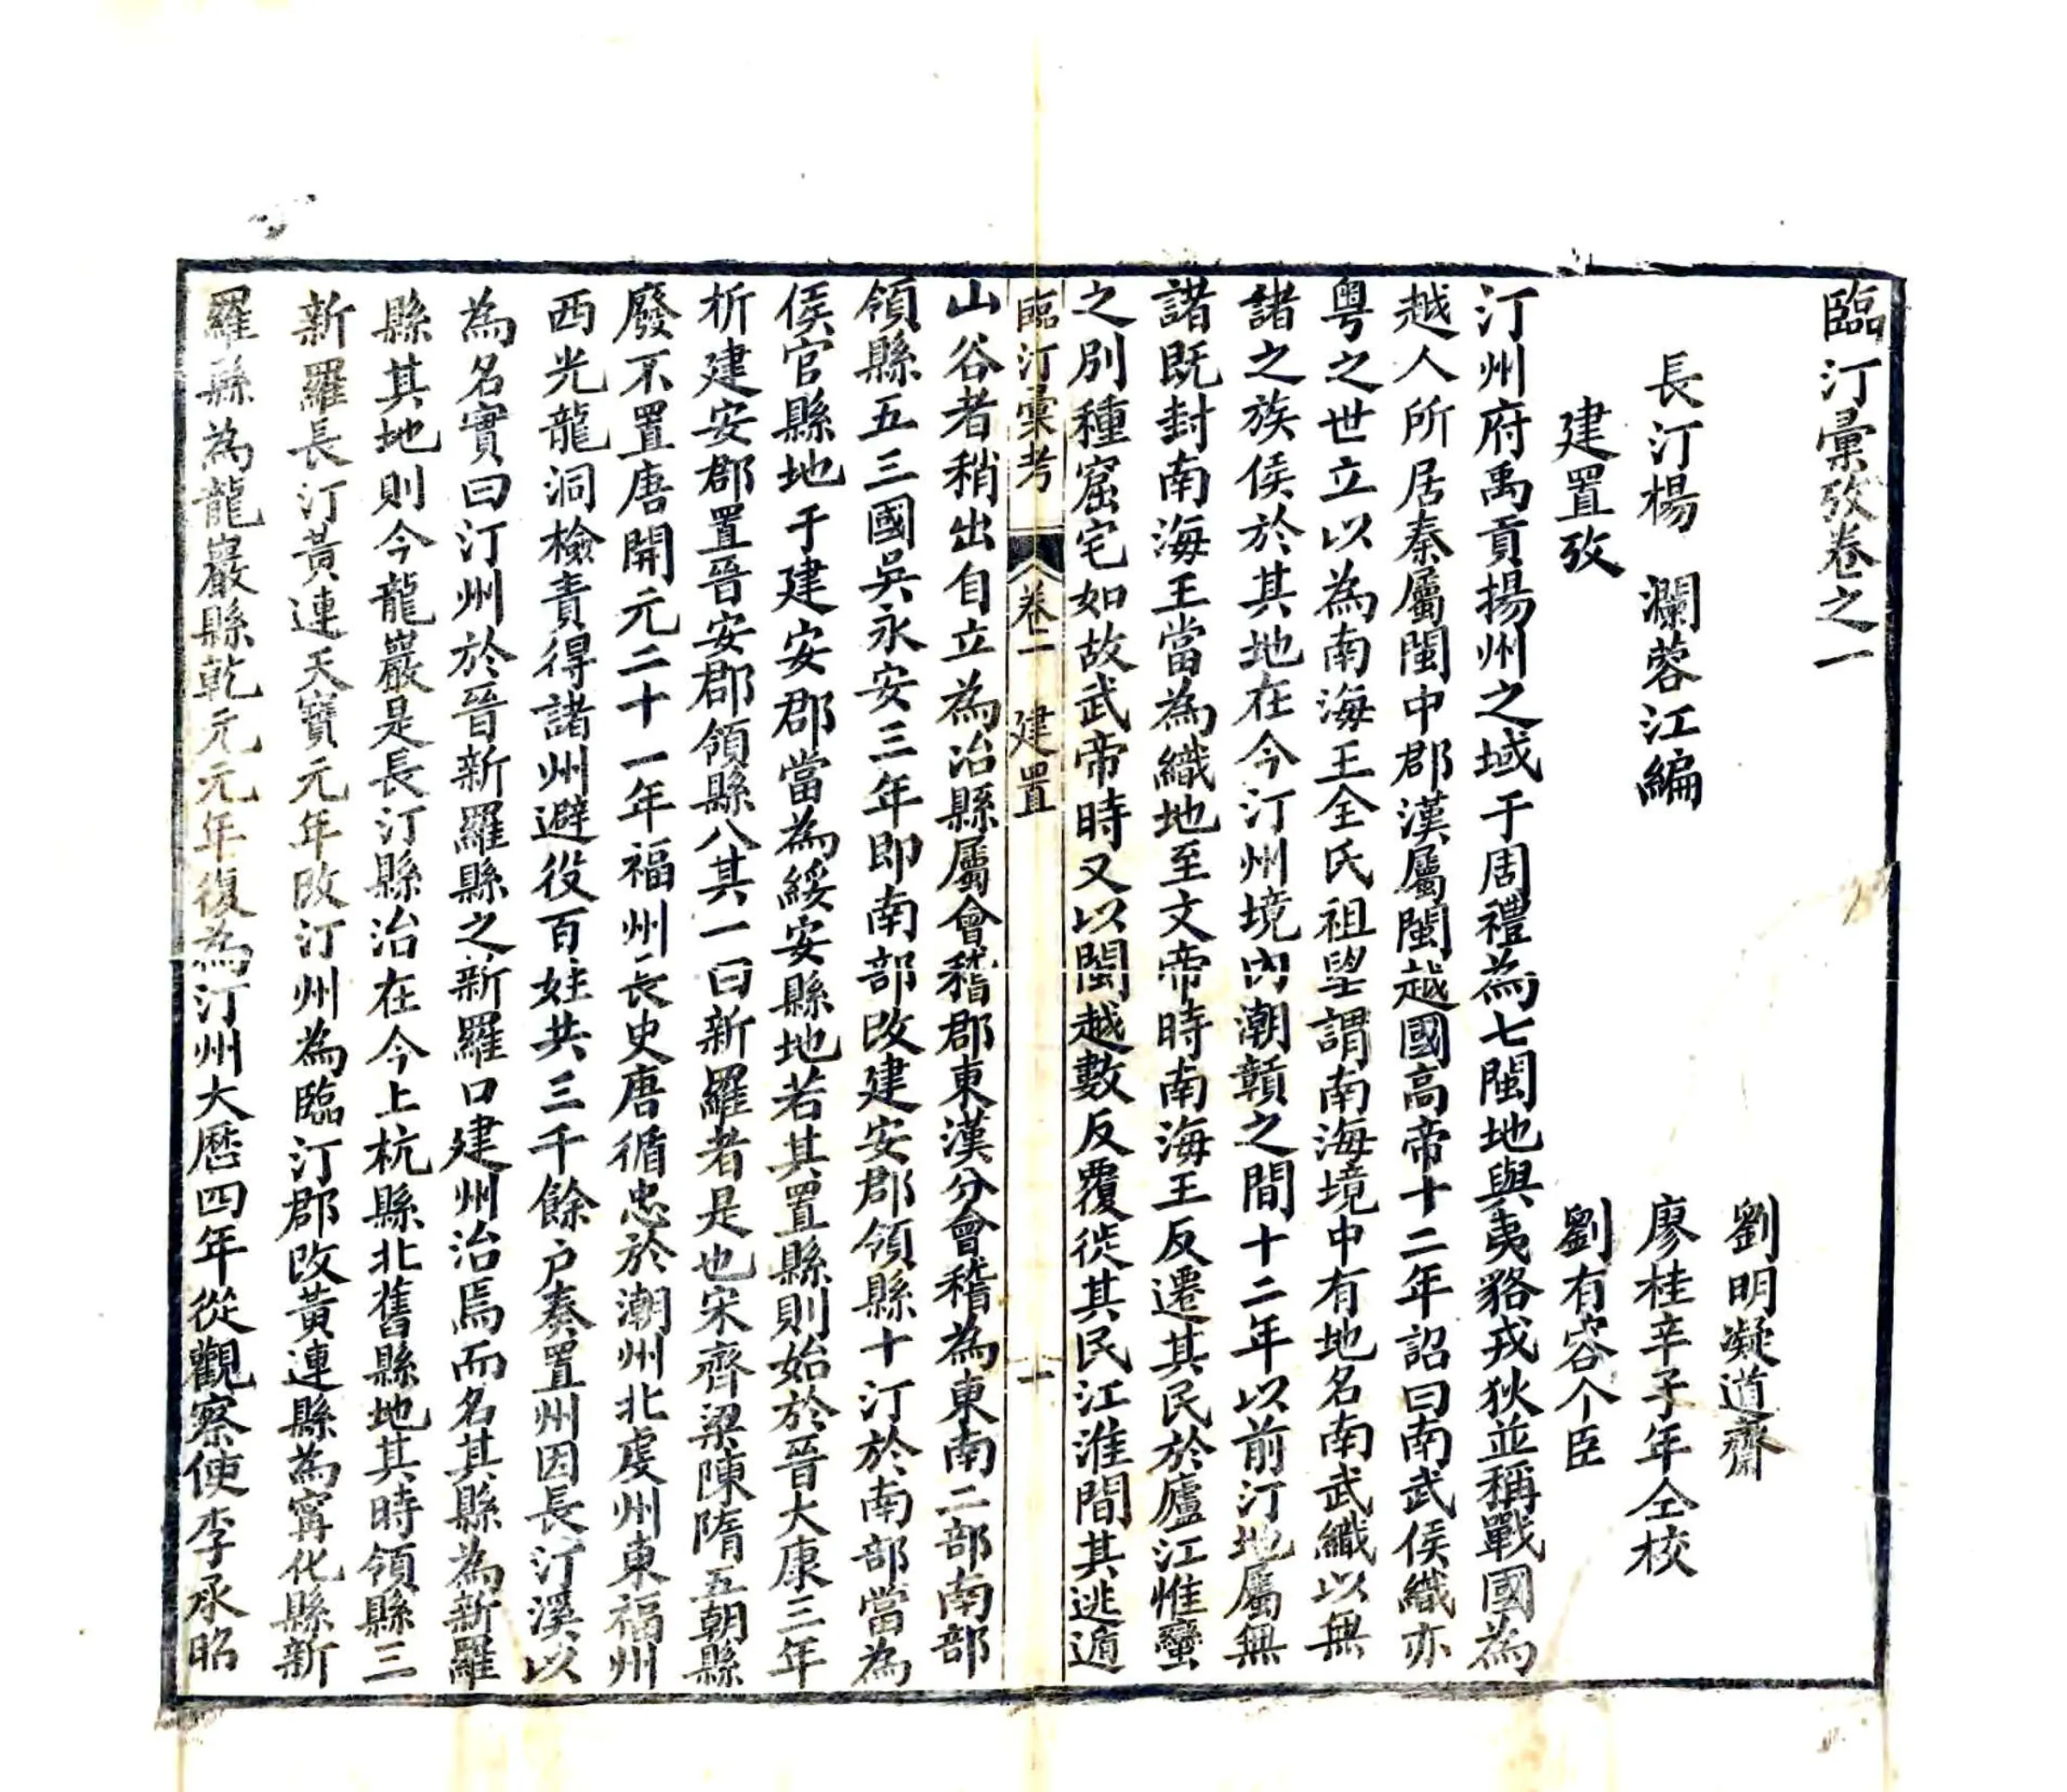 臨汀彙攷卷之一
劉明凝道齋
長汀楊瀾蓉江編
廖桂辛子年仝校
建置攷
劉有容个臣
汀州府禹貢揚州之域于周禮為七閩地與夷貉戎狄並稱戰國為
越人所居秦屬閩中郡漢屬閩越國高帝十二年詔曰南武侯織亦
粵之世立以為南海王全氏祖望謂南海境中有地名南武織以無
諸之族侯於其地在今汀州境內潮贛之間十二年以前汀地屬無
諸既封南海王當為織地至文帝時南海王反遷其民於廬江惟蠻
之別種窟宅如故武帝時又以閩越數反覆徙其民江淮間其逃遁
臨汀彙考 卷一 建置 一
山谷者稍出自立為冶縣屬會稽郡東漢分會稽為東南二部南部
領縣五三國吳永安三年即南部改建安郡領縣十汀於南部當為
侯官縣地于建安郡當為綏安縣地若其置縣則始於晉大康三年
析建安郡置晉安郡領縣八其一曰新羅者是也宋齊梁陳隋五朝縣
廢不置唐開元二十一年福州長史唐循忠於潮州北虔州東福州
西光龍洞檢責得諸州避役百姓共三千餘户奏置州因長汀溪以
為名實曰汀州於晉新羅縣之新羅口建州治焉而名其縣為新羅
縣其地則今龍巖是長汀縣治在今上杭縣北舊縣地其時領縣三
新羅長汀黃連天寶元年改汀州為臨汀郡改黃連縣為甯化縣新
羅縣為龍巖縣乾元元年復為汀州大曆四年從觀察使李承昭